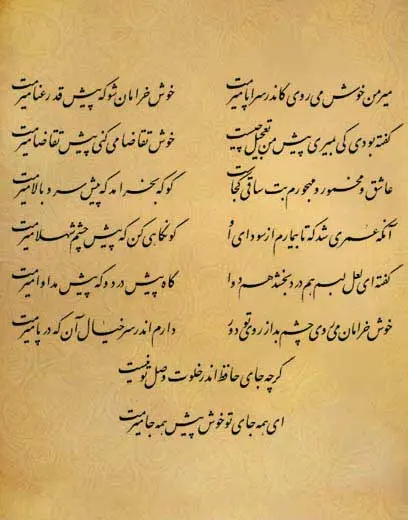 میر من خوش می روی کاندر سر اپا میرمت خوش خرامان شو که پیش قد رعنا میرمت
گفته بودی کی بمیری پیش من تعجیل چیست خوش تقاضا می کنی پیش تقاضا میرمت
عاشق و مخمور و مهجورم بت ساقی کجاست گو که بخرامد که پیش سرو بالا میرمت
آنکه عمری شد که تا بیمارم از سودای او گو نگاهی کن که پیش چشم شهلا میرمت
گفته ای لعل لبم هم درد بخشد هم دوا گاه پیش درد و گه پیش مداوا میرمت
خوش خرامان می روی چشم بد از روی تو دور دارم اندر سر خیال آن که در پا میرمت
گرچه جای حافظ اندر خلوت وصل تو نیست
ای همه جای تو خوش پیش همه جا میرمت